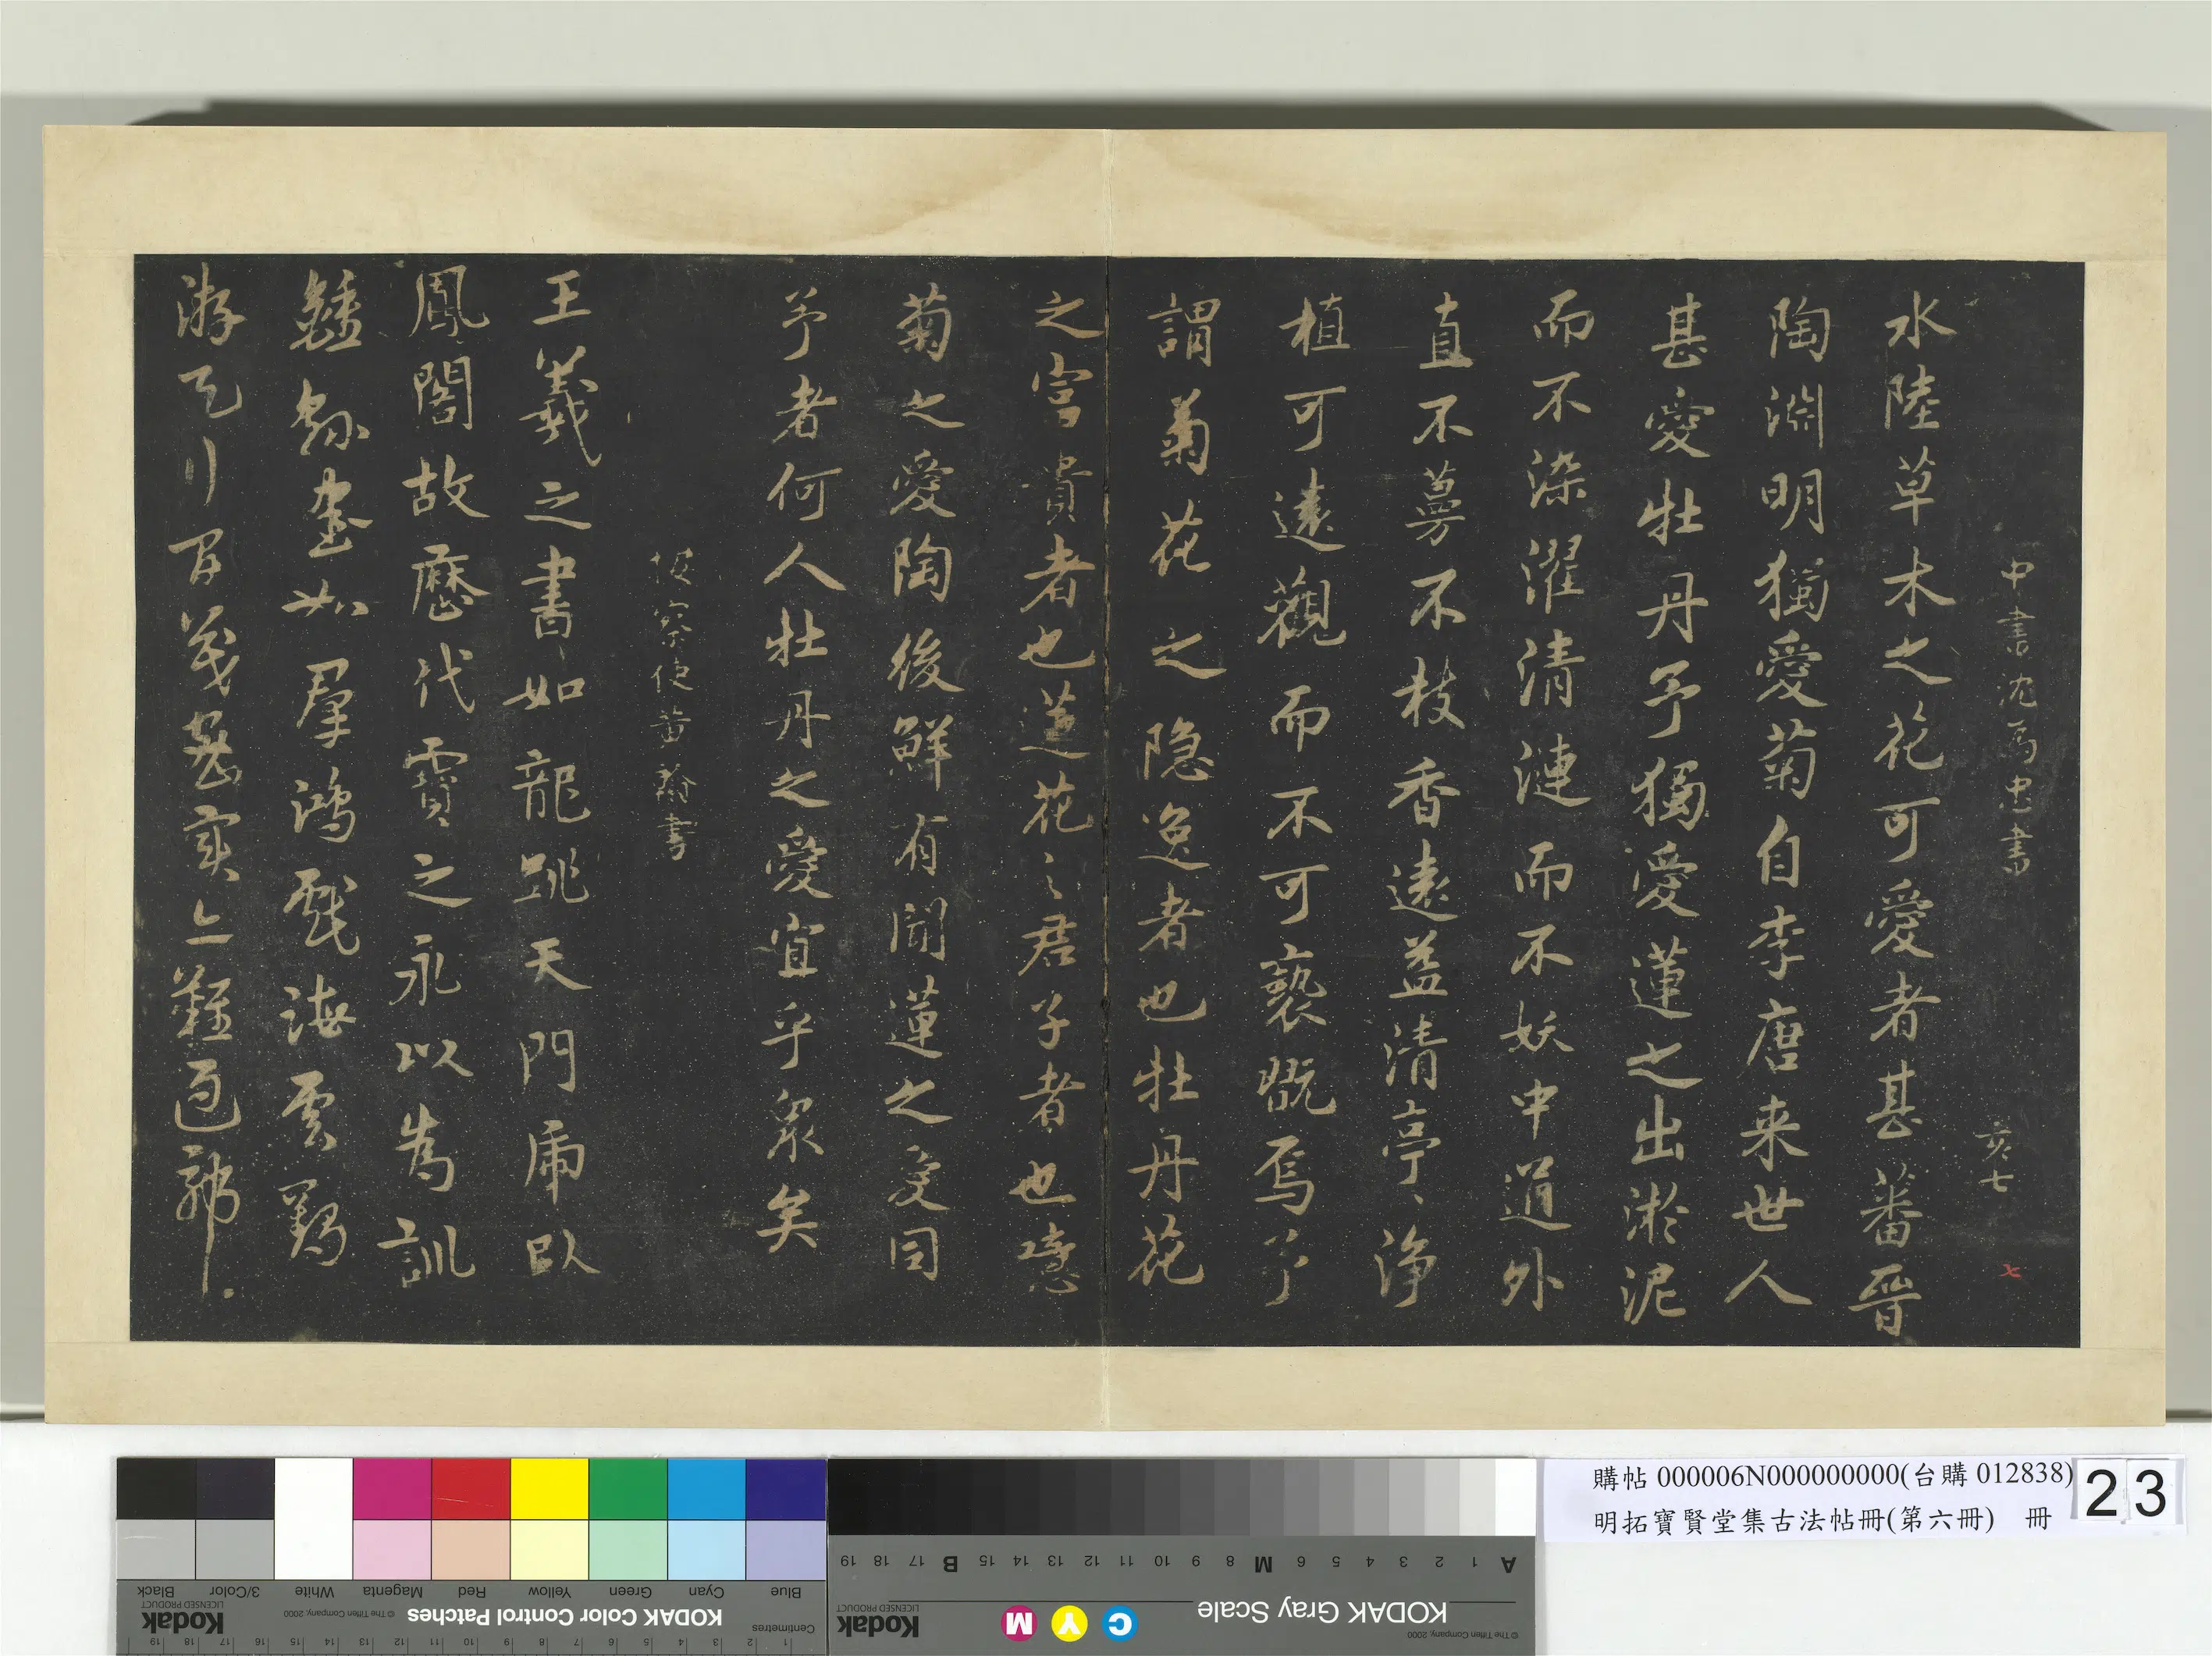 中書沈為忠書
亥七
七
水陸草木之花可愛者甚蕃晉
陶淵明獨愛菊自李唐来世人
甚愛牡丹予獨愛蓮之出淤泥
而不染濯清漣而不妖中通外
直不蔓不枝香遠益清亭、淨
植可遠觀而不可褻翫焉予
謂菊花之隐逸者也牡丹花
之富貴者也蓮花之君子者也噫
菊之愛陶後鮮有聞蓮之愛同
予者何人牡丹之愛宜乎眾矣
按察使黄翰書
王羲之書如龍跳天門虎臥
鳳閣故歷代寶之永以為訓
鍾繇書如群鴻戲海雲鶴
游天行間茂密實亦難過耶
購帖 000006N000000000(台購 012838)
明拓寶賢堂集古法帖冊(第六冊) 冊
23
KODAK Color Control Patches
© The Tiffen Company, 2000
Kodak
LICENSED PRODUCT
Centimetres
Blue Cyan Green Yellow Red Magenta White 3/Color Black
KODAK Gray Scale
C Y M
Kodak
LICENSED PRODUCT
© The Tiffen Company, 2000
A 1 2 3 4 5 6 M 8 9 10 11 12 13 14 15 B 17 18 19